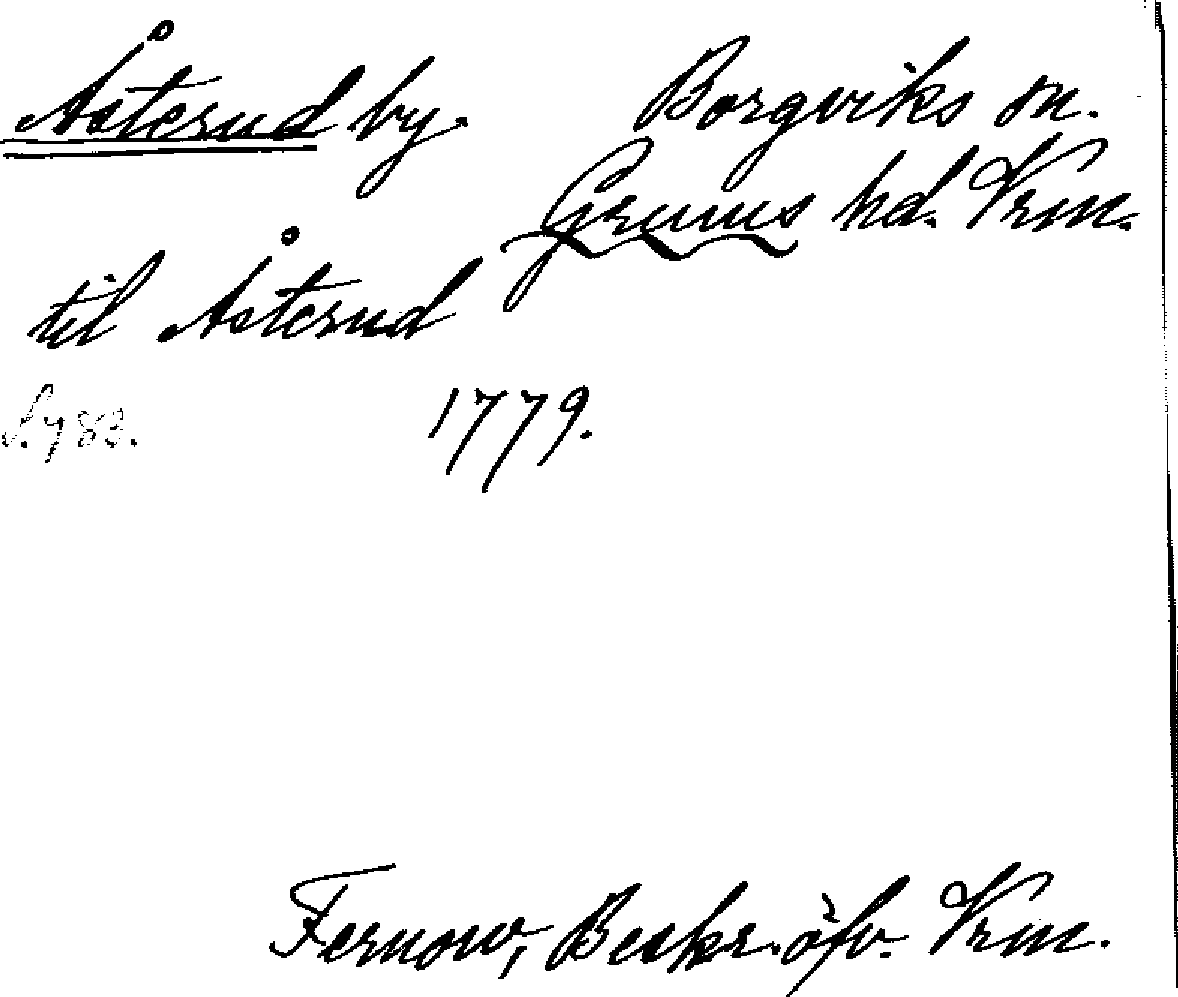 Åsterud by. Borgviks sn.
Grums hd. Vrm.
til Åsterud
S. 783. 1779.
Fernow, Beskr. öfv. Vrm.